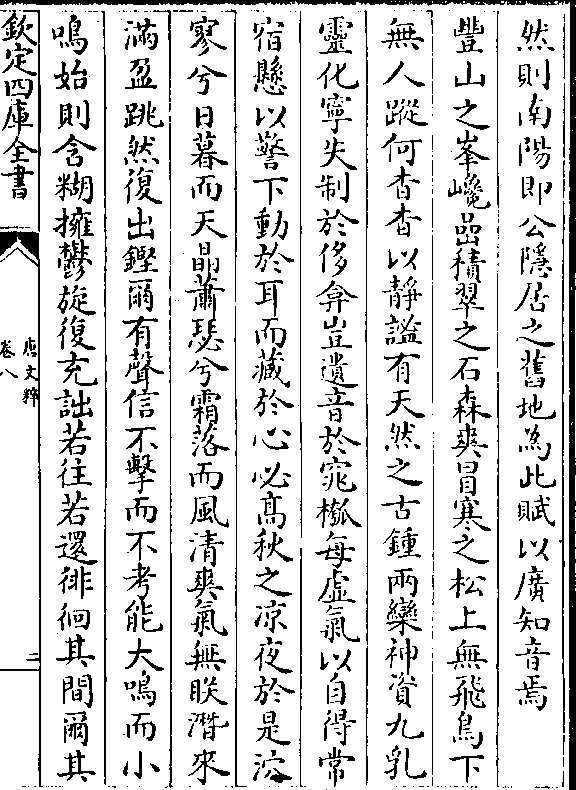 然則南陽即公隱居之舊地為此賦以廣知音焉
豐山之峯巉嵒積翠之石森爽冒寒之松上無飛鳥下
無人蹤何杳杳以靜謐有天然之古鍾兩欒神資九乳
靈化寧失制於侈弇豈遺音於窕槬每虚氣以自得常
宿懸以警下動於耳而藏於心必髙秋之凉夜於是泬
寥兮日暮而天晶蕭瑟兮霜落而風清爽氣無朕潛來
滿盈跳然復出鏗爾有聲信不擊而不考能大鳴而小
鳴始則含糊擁鬱旋復充詘若往若還徘徊其間爾其
欽定四庫全書
唐文粹
卷八
二